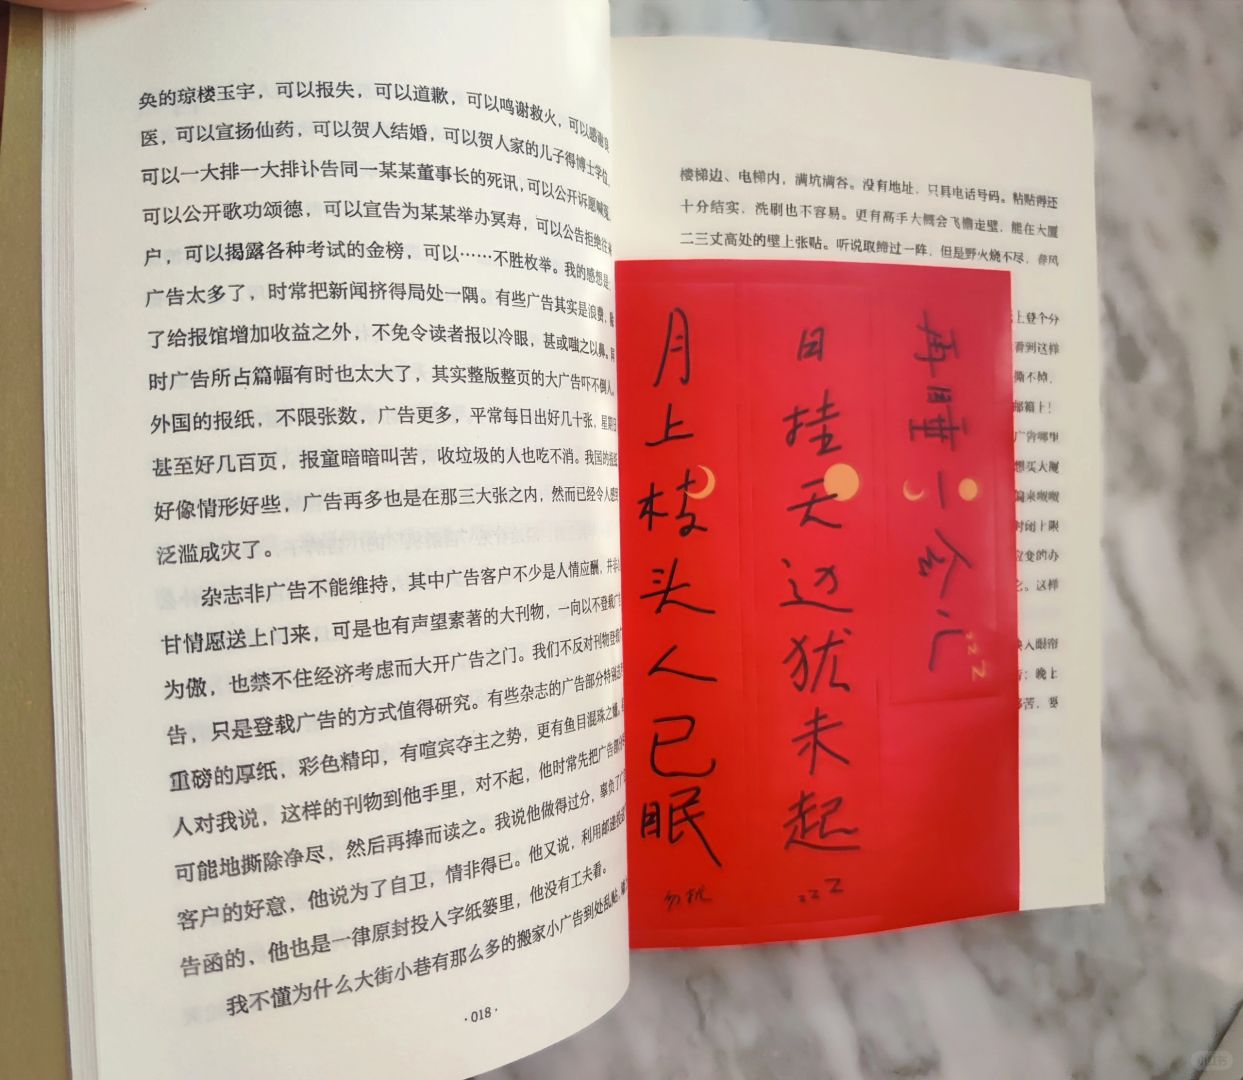 奂的琼楼玉宇，可以报失，可以道歉，可以鸣谢救火，可以感谢良
医，可以宣扬仙药，可以贺人结婚，可以贺人家的儿子得博士学位，
可以一大排一大排讣告同一某某董事长的死讯，可以公开诉愿喊冤，
可以公开歌功颂德，可以宣告为某某举办冥寿，可以公告拒绝往来
户，可以揭露各种考试的金榜，可以……不胜枚举。我的感想是，
广告太多了，时常把新闻挤得局处一隅。有些广告其实是浪费，除
了给报馆增加收益之外，不免令读者报以冷眼，甚或嗤之以鼻。同
时广告所占篇幅有时也太大了，其实整版整页的大广告吓不倒人。
外国的报纸，不限张数，广告更多，平常每日出好几十张，星期日
甚至好几百页，报童暗暗叫苦，收垃圾的人也吃不消。我国的报纸
好像情形好些，广告再多也是在那三大张之内，然而已经令人感到
泛滥成灾了。
杂志非广告不能维持，其中广告客户不少是人情应酬，并非
甘情愿送上门来，可是也有声望素著的大刊物，一向以不登载广
为傲，也禁不住经济考虑而大开广告之门。我们不反对刊物登载
告，只是登载广告的方式值得研究。有些杂志的广告部分特别
重磅的厚纸，彩色精印，有喧宾夺主之势，更有鱼目混珠之嫌。
人对我说，这样的刊物到他手里，对不起，他时常先把广告部分
可能地撕除净尽，然后再捧而读之。我说他做得过分，辜负了广
客户的好意，他说为了自卫，情非得已。他又说，利用邮递投
告函的，他也是一律原封投入字纸篓里，他没有工夫看。
我不懂为什么大街小巷有那么多的搬家小广告到处乱贴，
·018·
楼梯边、电梯内，满坑满谷。没有地址，只具电话号码。粘贴得还
十分结实，洗刷也不容易。更有高手大概会飞檐走壁，能在大厦
二三丈高处的壁上张贴。听说取缔过一阵，但是野火烧不尽，春风
上登个分
看到这样
撕不掉，
邮箱上！
广告哪里
想买大厦
时闭上眼
应变的办
之。这样
映入眼帘
；晚上
苦，要
月上枝头人已眠
勿扰
日挂天边犹未起
zzZ
再睡一会儿
zzZ
小红书